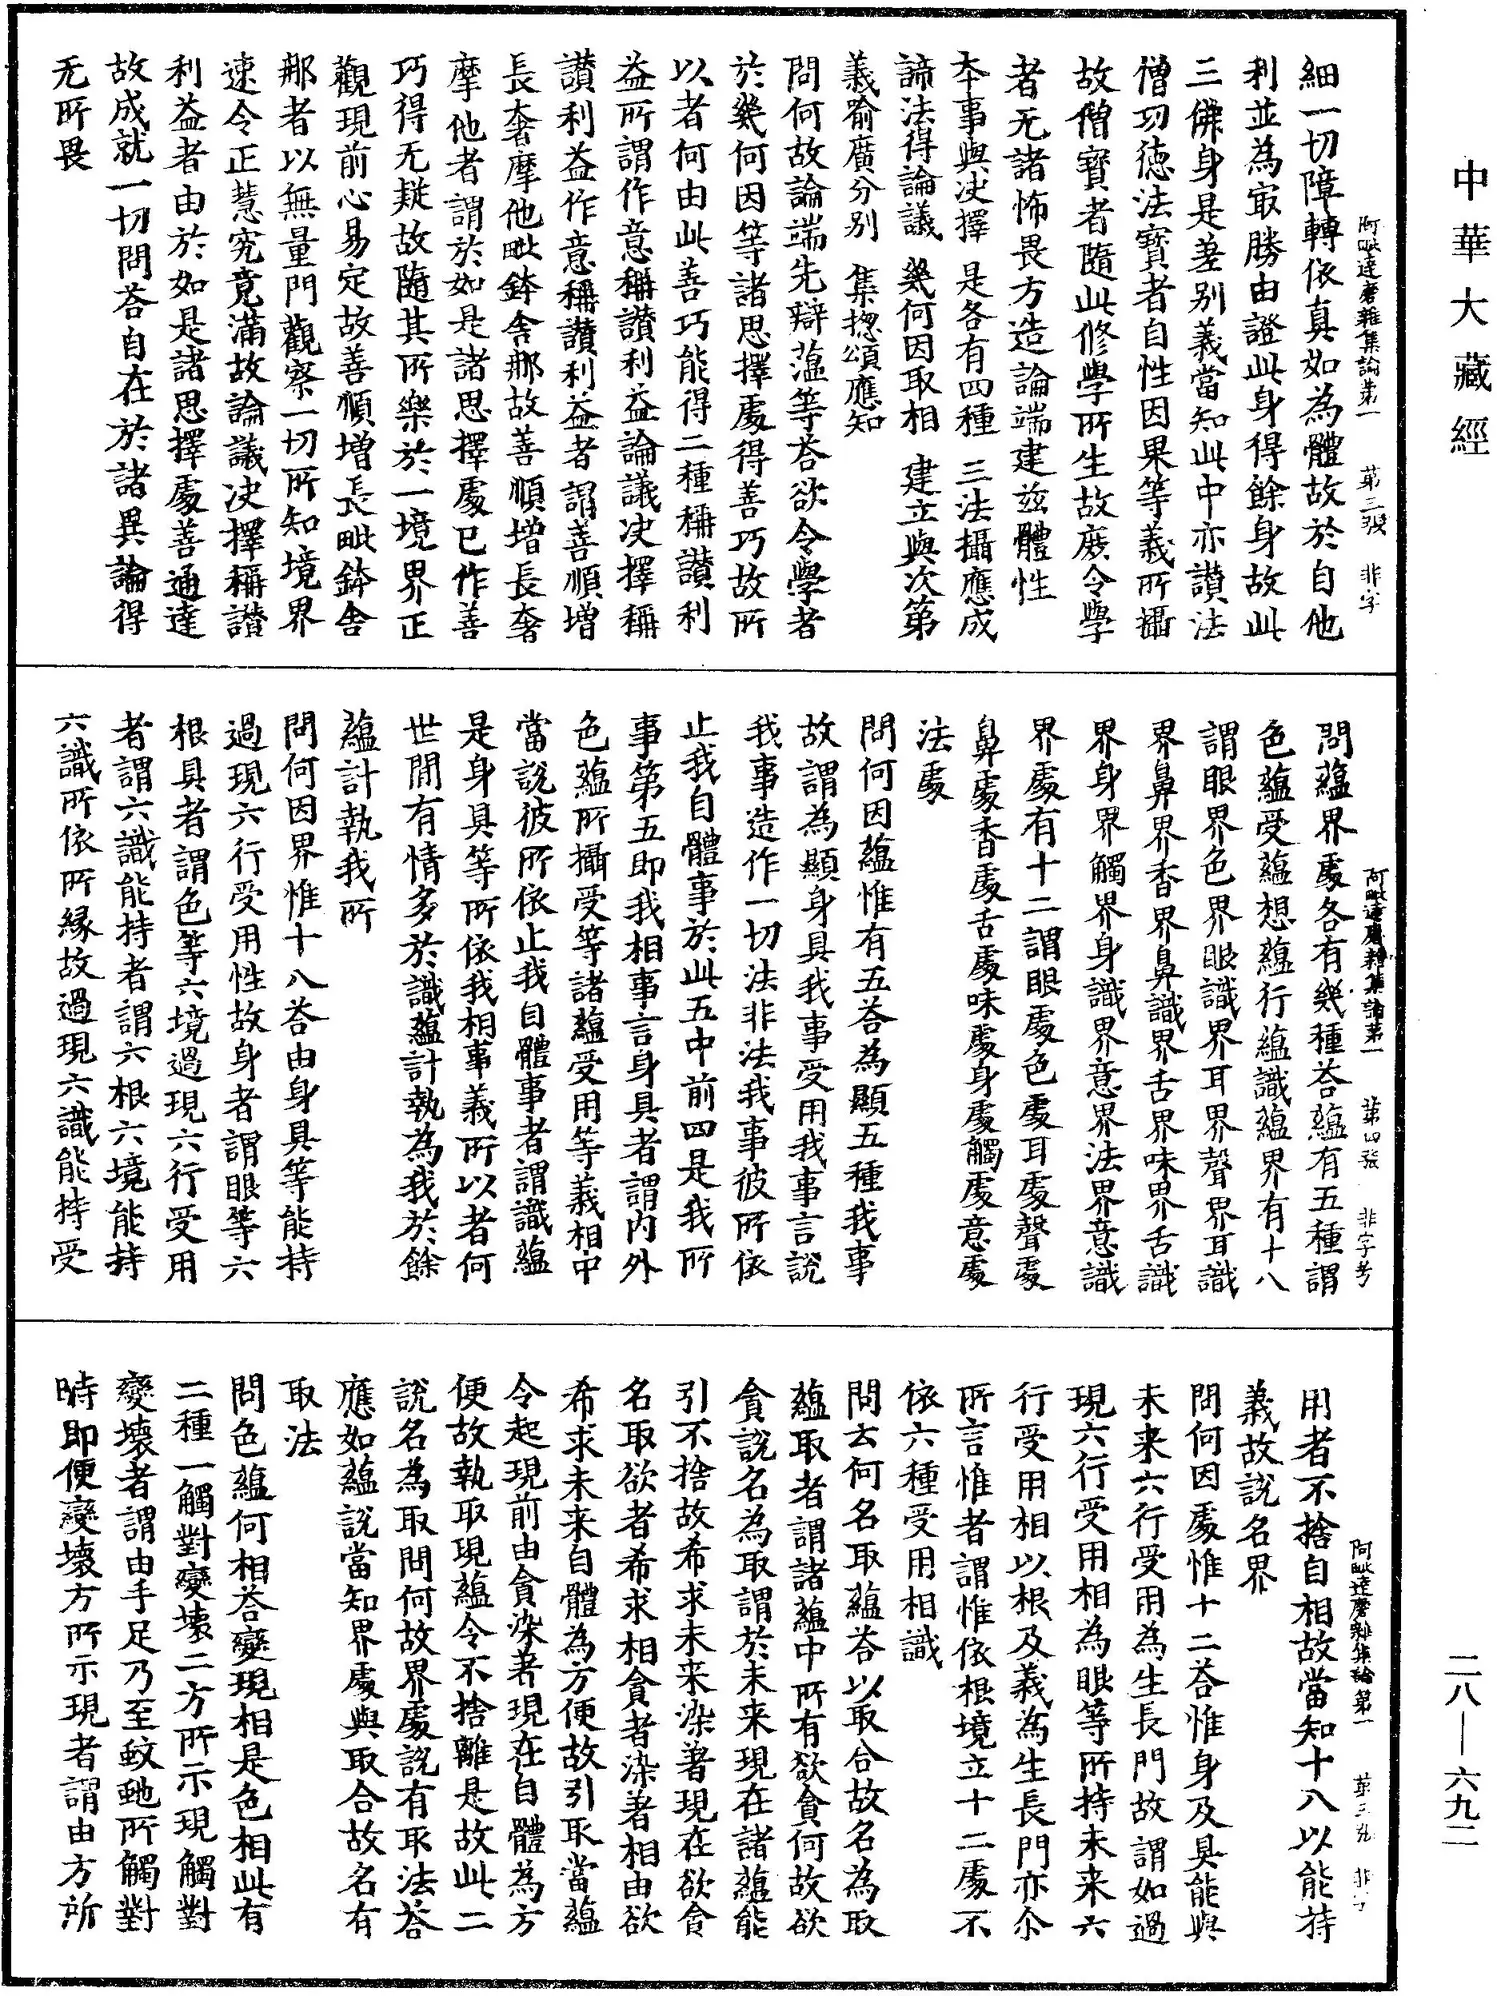 中華大藏經
細一切障轉依真如為體故於自他
利並為寂勝由證此身得餘身故此
三佛身是差別義當知此中亦讃法
僧功德法寶者自性因果等義所攝
故僧寶者隨此修學所生故廣令學
者无諸怖畏方造論端建兹體性
本事與决擇 是各有四種 三法攝應成
諦法得論議 幾何因取相 建立與次第
義喻廣分別 集揔頌應知
問何故論端先辯蕰等荅欲令學者
於幾何因等諸思擇處得善巧故所
以者何由此善巧能得二種稱讃利
益所謂作意稱讃利益論議决擇稱
讃利益作意稱讃利益者謂善順增
長奢摩他毗鉢舍那故善順增長奢
摩他者謂於如是諸思擇處已作善
巧得无疑故隨其所樂於一境界正
觀現前心易定故善順增長毗鉢舍
那者以無量門觀察一切所知境界
速令正慧究竟滿故論議决擇稱讃
利益者由於如是諸思擇處善通達
故成就一切問荅自在於諸異論得
无所畏
阿毗達磨雜集論第一 第三張 非字
問蘊界處各有幾種荅蘊有五種謂
色蘊受蘊想蘊行蘊識蘊界有十八
謂眼界色界眼識界耳界聲界耳識
界鼻界香界鼻識界舌界味界舌識
界身界觸界身識界意界法界意識
界處有十二謂眼處色處耳處聲處
鼻處香處舌處味處身處觸處意處
法處
問何因蘊惟有五荅為顯五種我事
故謂為顯身具我事受用我事言說
我事造作一切法非法我事彼所依
止我自體事於此五中前四是我所
事第五即我相事言身具者謂內外
色蘊所攝受等諸蘊受用等義相中
當說彼所依止我自體事者謂識蘊
是身具等所依我相事義所以者何
世間有情多於識蘊計執為我於餘
蘊計執我所
問何因界惟十八荅由身具等能持
過現六行受用性故身者謂眼等六
根具者謂色等六境過現六行受用
者謂六識能持者謂六根六境能持
六識所依所緣故過現六識能持受
阿毗達磨雜集論第一 第四張 非字号
用者不捨自相故當知十八以能持
義故說名界
問何因處惟十二荅惟身及具能與
未来六行受用為生長門故謂如過
現六行受用相為眼等所持未来六
行受用相以根及義為生長門亦尒
所言惟者謂惟依根境立十二處不
依六種受用相識
問云何名取蘊荅以取合故名為取
蘊取者謂諸蘊中所有欲貪何故欲
貪說名為取謂於未来現在諸蘊能
引不捨故希求未来染著現在欲貪
名取欲者希求相貪者染著相由欲
希求未来自體為方便故引取當蘊
令起現前由貪染著現在自體為方
便故執取現蘊令不捨離是故此二
說名為取問何故界處說有取法荅
應如蘊說當知界處與取合故名有
取法
問色蘊何相荅變現相是色相此有
二種一觸對變壞二方所示現觸對
變壞者謂由手足乃至蚊虵所觸對
時即便變壞方所示現者謂由方所
阿毗達磨雜集論第一
二八—六九二